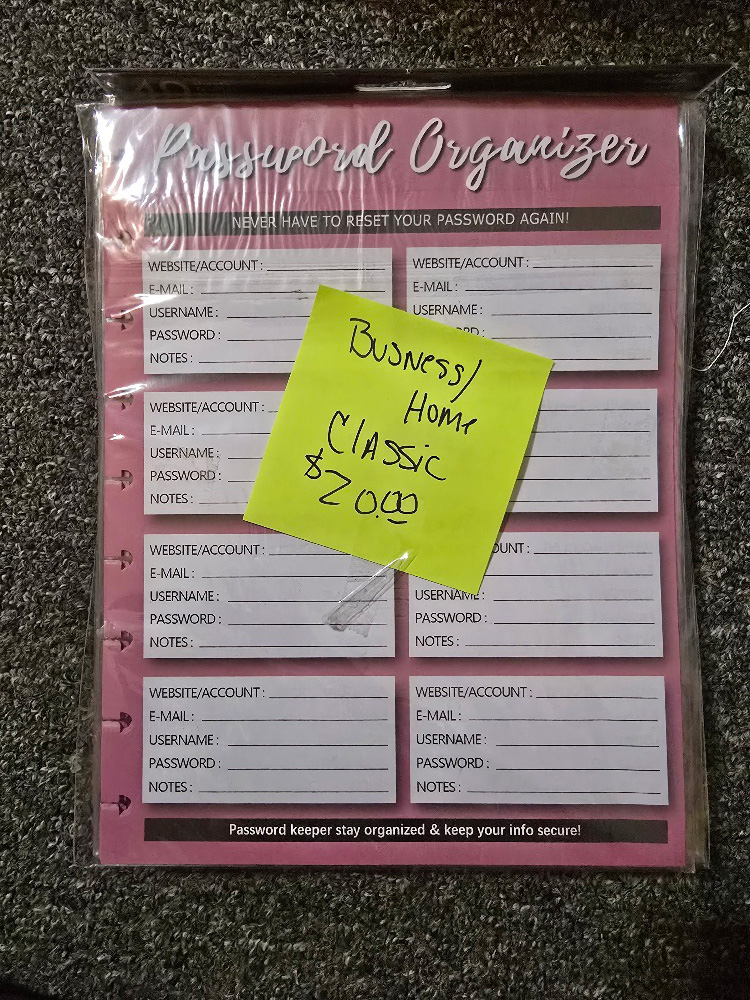 Password Organizer
NEVER HAVE TO RESET YOUR PASSWORD AGAIN!
WEBSITE/ACCOUNT :
E-MAIL :
USERNAME :
PASSWORD :
NOTES :
WEBSITE/ACCOUNT :
E-MAIL :
USERNAME :
Busness/
Home
Classic
$20.00
WEBSITE/ACCOUNT :
E-MAIL :
USERNAME :
PASSWORD :
NOTES :
WEBSITE/ACCOUNT :
E-MAIL :
USERNAME :
PASSWORD :
NOTES :
USERNAME :
PASSWORD :
NOTES :
WEBSITE/ACCOUNT :
E-MAIL :
USERNAME :
PASSWORD :
NOTES :
WEBSITE/ACCOUNT :
E-MAIL :
USERNAME :
PASSWORD :
NOTES :
Password keeper stay organized & keep your info secure!